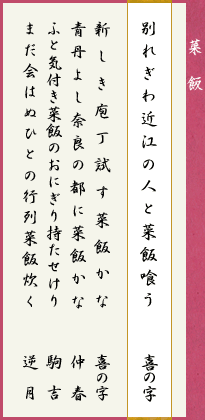 菜飯
別れぎわ近江の人と菜飯喰う 喜の字
新しき庖丁試す菜飯かな 喜の字
青丹よし奈良の都に菜飯かな 仲春
ふと気付き菜飯のおにぎり持たせけり 駒吉
まだ会はぬひとの行列菜飯炊く 逆月